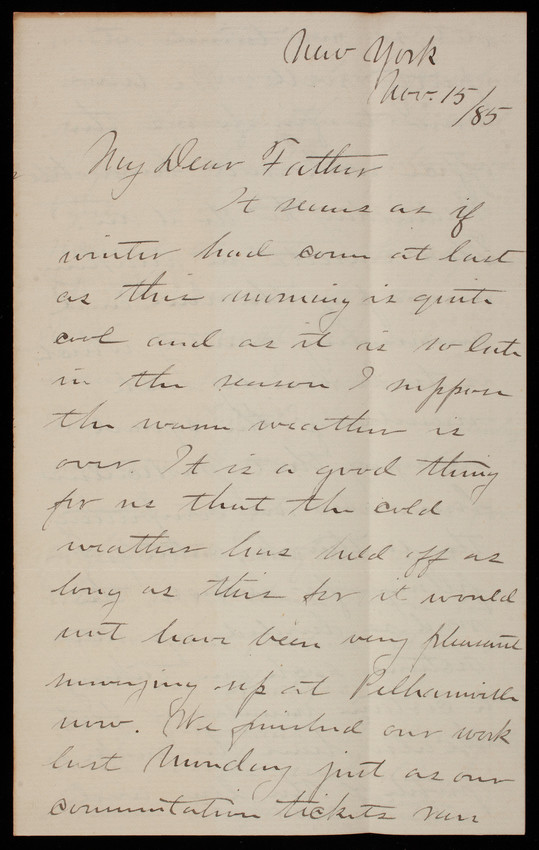 New York
Nov. 15/85
My Dear Father
It seems as if
winter had come at last
as this morning is quite
cool and as it is so late
in the season I suppose
the warm weather is
over. It is a good thing
for us that the cold
weather has held off as
long as this for it would
not have been very pleasant
surveying up at Pelhamville
now. We finished our work
last Monday just as our
commutation tickets ran